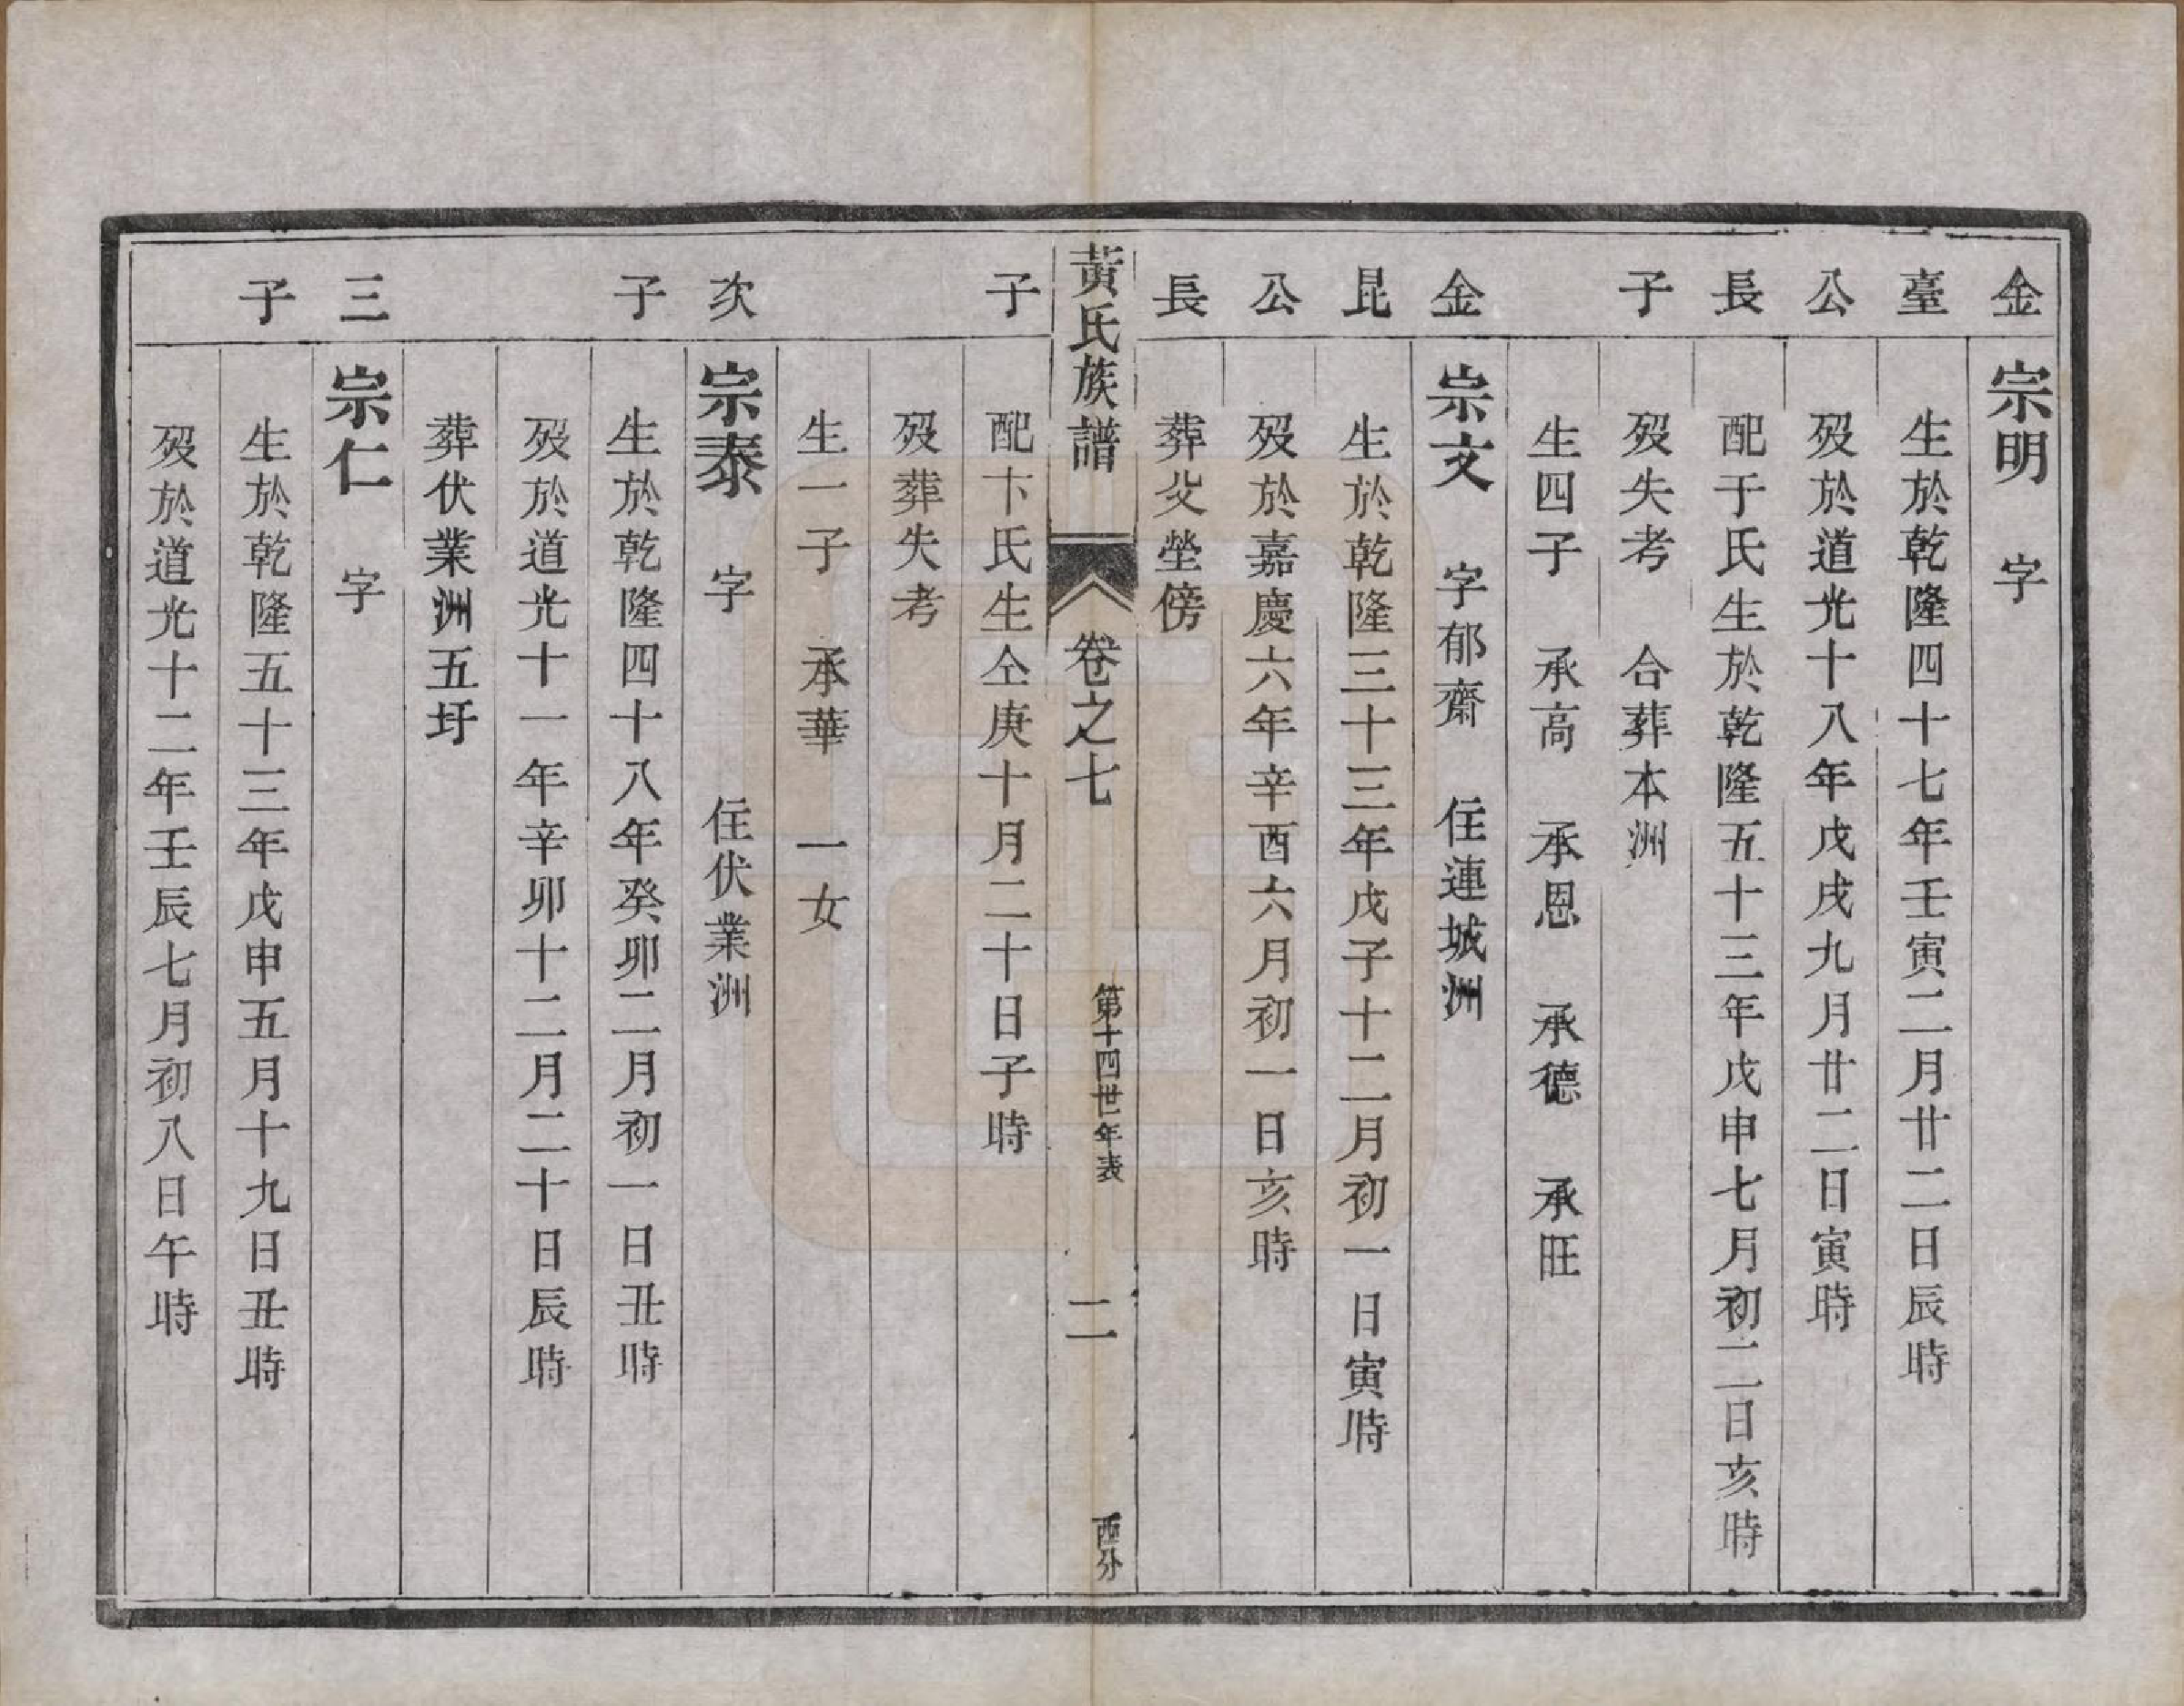 金臺公長子
宗明　字
生於乾隆四十七年壬寅二月廿二日辰時
歿於道光十八年戊戌九月廿二日寅時
配于氏生於乾隆五十三年戊申七月初二日亥時
歿失考　合葬本洲
生四子　承高　承恩　承德　承旺
金昆公長子
宗文　字郁齋　住連城洲
生於乾隆三十三年戊子十二月初一日寅時
歿於嘉慶六年辛酉六月初一日亥時
葬父塋傍
黃氏族譜　卷之七　第十四世年表　二　西分
配卞氏生仝庚十月二十日子時
歿葬失考
生一子　承華　一女
次子
宗泰　字　住伏業洲
生於乾隆四十八年癸卯二月初一日丑時
歿於道光十一年辛卯十二月二十日辰時
葬伏業洲五圩
三子
宗仁　字
生於乾隆五十三年戊申五月十九日丑時
歿於道光十二年壬辰七月初八日午時